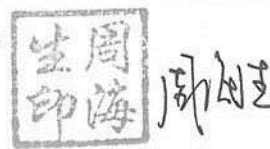 周海生印
周海生